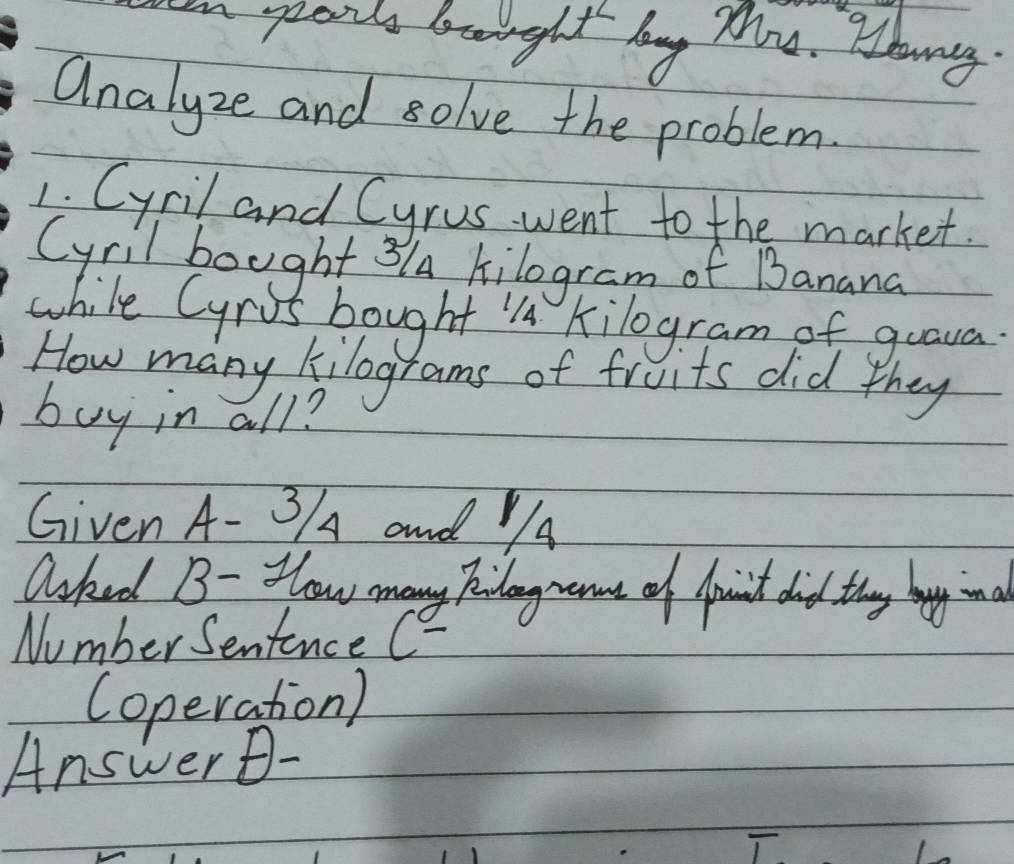 parls bought by Mrs. Gomez.
Analyze and solve the problem.
1. Cyril and Cyrus went to the market.
Cyril bought 3/4 kilogram of Banana
while Cyrus bought 1/4 kilogram of guava.
How many kilograms of fruits did they
buy in all?
Given A- 3/4 and 1/4
Asked B- How many kilograms of fruit did they buy in al
Number Sentence C-
(operation)
Answer D-